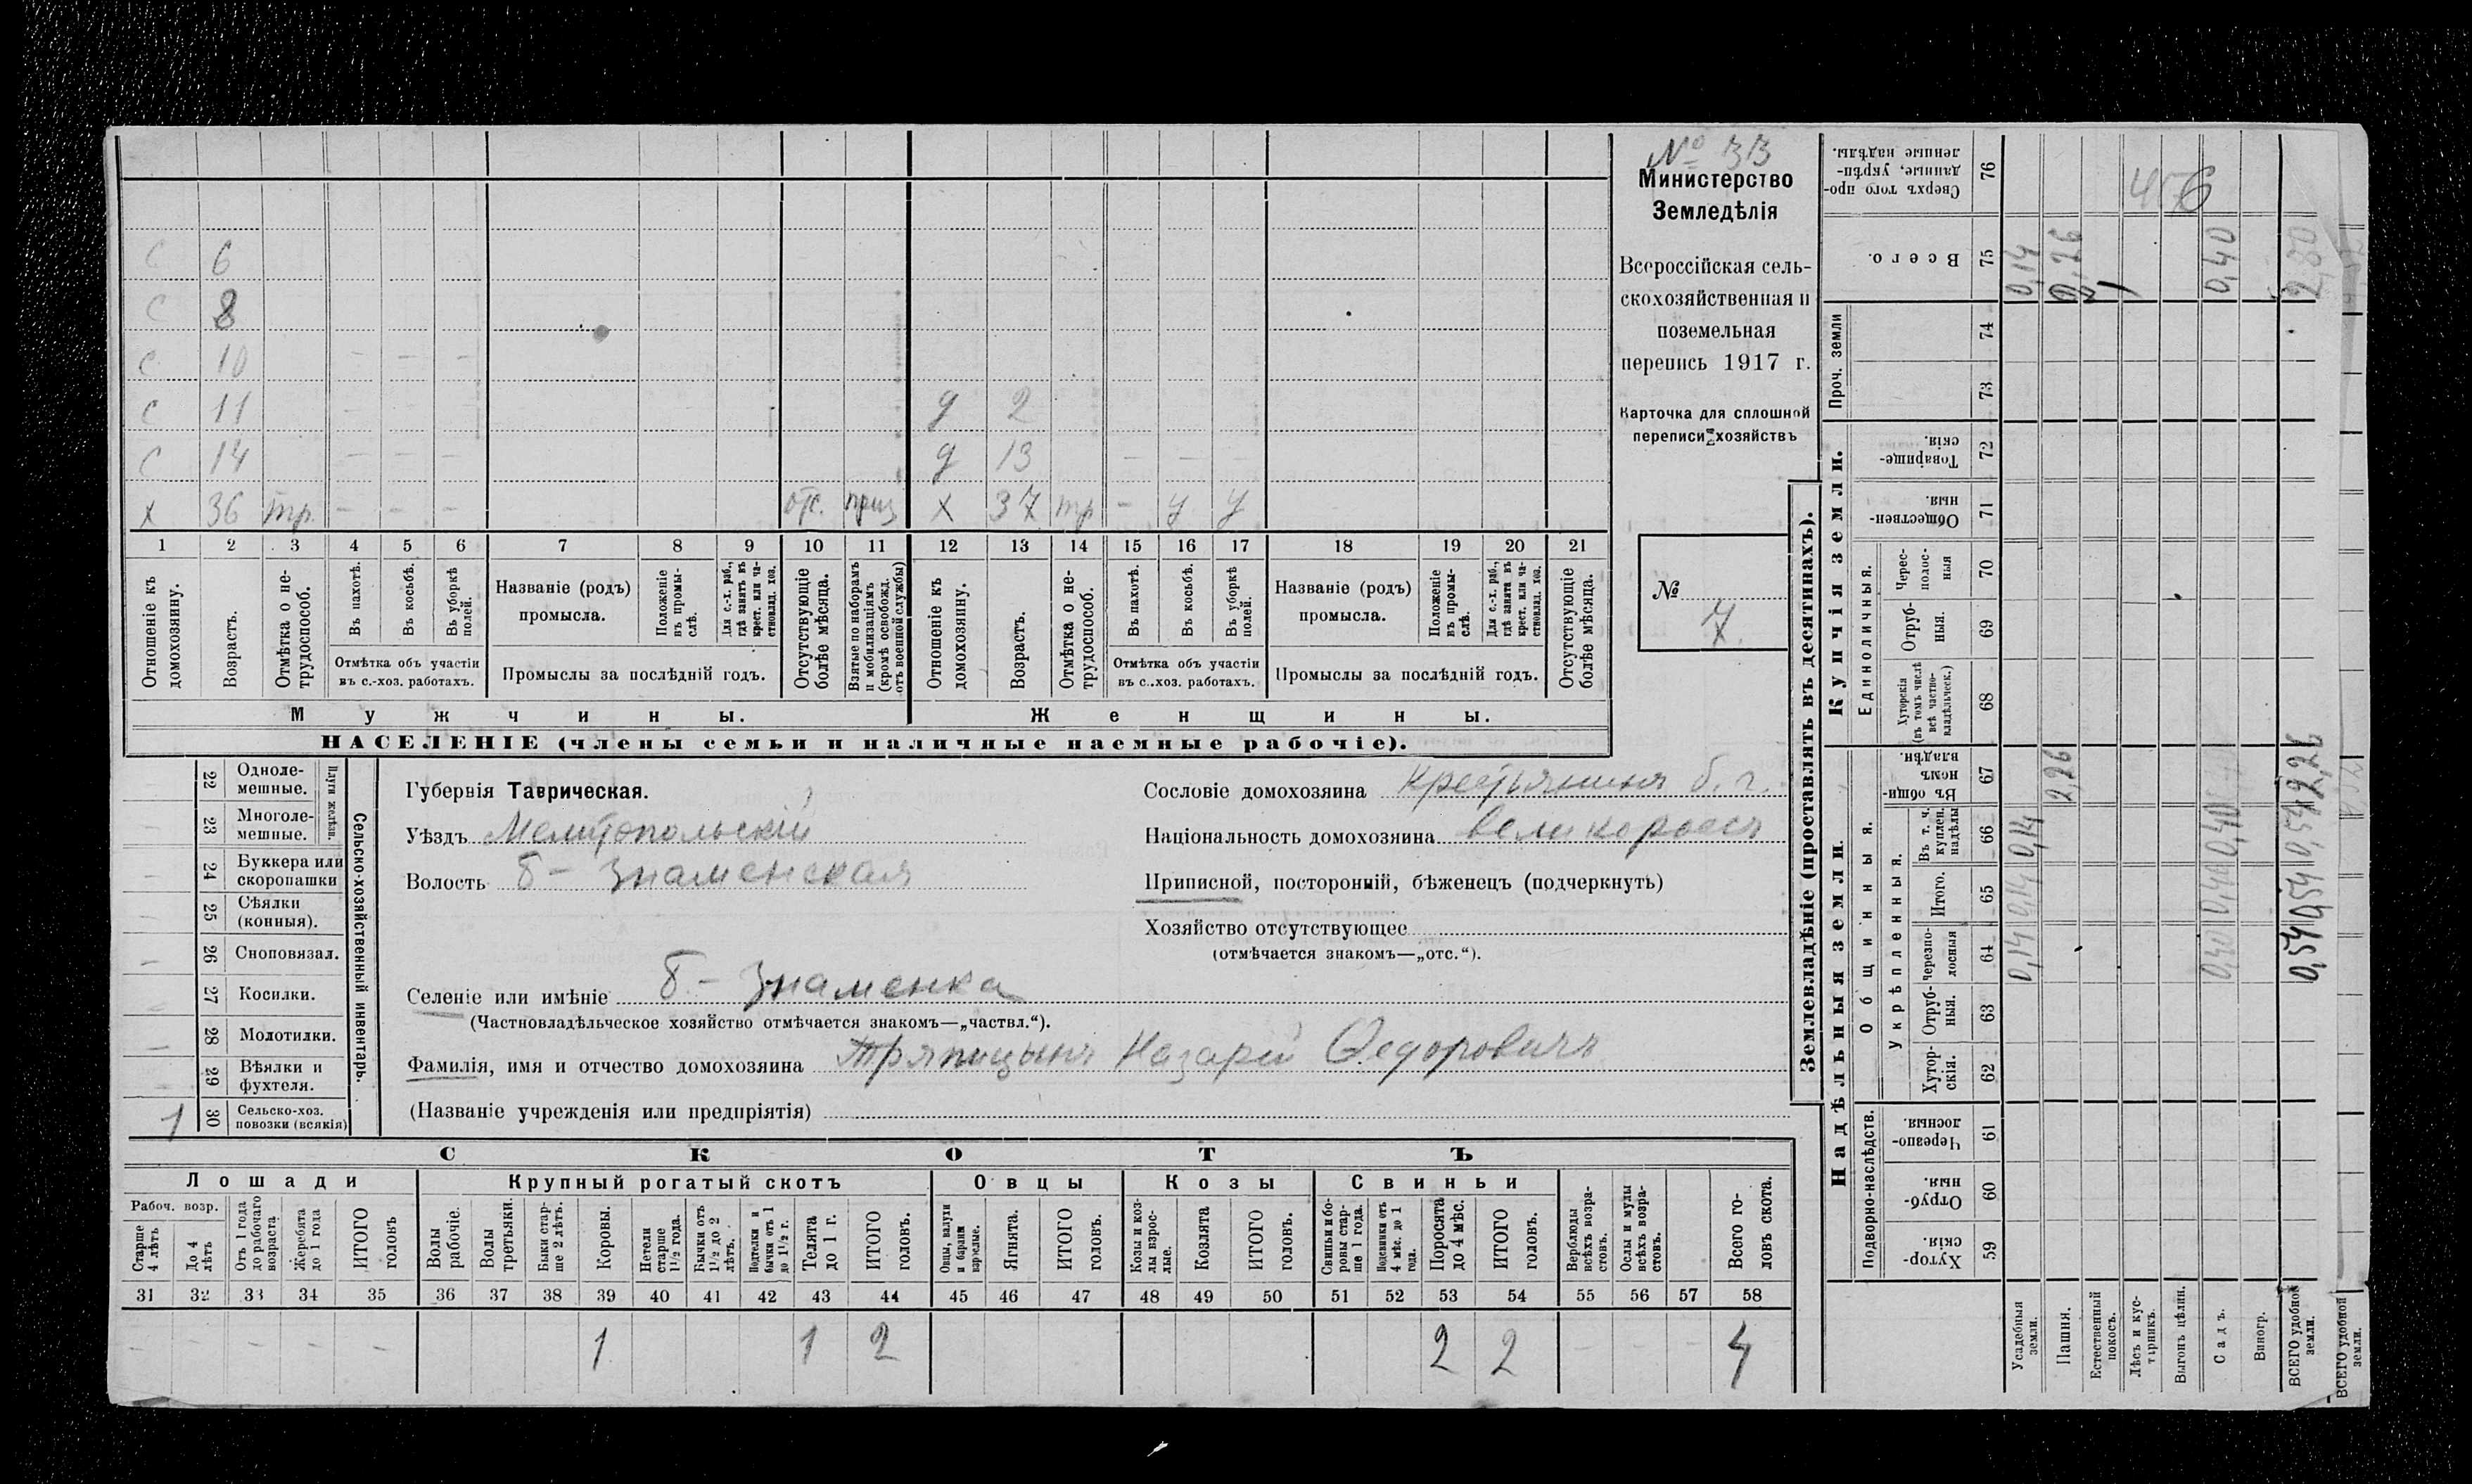 № 33
Министерство
Земледѣлія
Всероссійская сель-
скохозяйственная и
поземельная
перепись 1917 г.
Карточка для сплошной
переписи хозяйствъ
№
7.
с 6
с 8
с 10 - - -
с 11 - - - д 2
с 14 - - - д 13 - - -
х 36 тр. - - - отс. приз х 37 тр - у у
1 2 3 4 5 6 7 8 9 10 11 12 13 14 15 16 17 18 19 20 21
Отношеніе къ домохозяину.
Возрастъ.
Отмѣтка о не-трудоспособ.
Въ пахотѣ.
Въ косьбѣ.
Въ уборкѣ полей.
Отмѣтка объ участіи
въ с.-хоз. работахъ.
Названіе (родъ)
промысла.
Положеніе въ промы-слѣ.
Для с.-х. раб., гдѣ занятъ въ крест. или ча-стновлад. хоз.
Промыслы за послѣдній годъ.
Отсутствующіе болѣе мѣсяца.
Взятые по наборамъ и мобилизаціямъ (кромѣ освобожд. отъ военной службы)
Отношеніе къ домохозяину.
Возрастъ.
Отмѣтка о не-трудоспособ.
Въ пахотѣ.
Въ косьбѣ.
Въ уборкѣ полей.
Отмѣтка объ участіи
въ с.-хоз. работахъ.
Названіе (родъ)
промысла.
Положеніе въ промы-слѣ.
Для с.-х. раб., гдѣ занята въ крест. или ча-стновлад. хоз.
Промыслы за послѣдній годъ.
Отсутствующіе болѣе мѣсяца.
Мужчины. Женщины.
НАСЕЛЕНІЕ (члены семьи и наличные наемные рабочіе).
Сельско-хозяйственный инвентарь.
Плуги желѣзн.
22 Одноле-мешные.
23 Многоле-мешные.
24 Буккера или скоропашки
25 Сѣялки (конныя).
26 Сноповязал.
27 Косилки.
28 Молотилки.
29 Вѣялки и фухтеля.
1 30 Сельско-хоз. повозки (всякія)
Губернія Таврическая.
Уѣздъ Мелитопольскій
Волость Б- Знаменская
Селеніе или имѣніе Б- Знаменка
(Частновладѣльческое хозяйство отмѣчается знакомъ—„частвл.“).
Фамилія, имя и отчество домохозяина Тряпицынъ Назарій Ѳедоровичъ
(Названіе учрежденія или предпріятія)
Сословіе домохозяина Крестьянинъ б. г.
Національность домохозяина великороссъ
Приписной, посторонній, бѣженецъ (подчеркнуть)
Хозяйство отсутствующее
(отмѣчается знакомъ—„отс.“).
СКОТЪ
Лошади Крупный рогатый скотъ Овцы Козы Свиньи
Рабоч. возр.
Старше 4 лѣтъ
До 4 лѣтъ
Отъ 1 года до рабочаго возраста
Жеребята до 1 года
ИТОГО головъ
Волы рабочіе.
Волы третьяки.
Быки стар-ше 2 лѣтъ.
Коровы.
Нетели старше 1½ года.
Бычки отъ 1½ до 2 лѣтъ.
Подтелки и бычки отъ 1 до 1½ г.
Телята до 1 г.
ИТОГО головъ.
Овцы, валухи и бараны взрослые.
Ягнята.
ИТОГО головъ.
Козы и коз-лы взрос-лые.
Козлята
ИТОГО головъ.
Свиньи и бо-ровы стар-ше 1 года.
Подсвинки отъ 4 мѣс. до 1 года.
Поросята до 4 мѣс.
ИТОГО головъ.
Верблюды всѣхъ возра-стовъ.
Ослы и мулы всѣхъ возра-стовъ.
Всего го-ловъ скота.
31 32 33 34 35 36 37 38 39 40 41 42 43 44 45 46 47 48 49 50 51 52 53 54 55 56 57 58
- - - - - 1 1 2 2 2 - - - 4
Землевладѣніе (проставлять въ десятинахъ).
Надѣльныя земли.
Купчія земли.
Проч. земли
Подворно-наслѣдств.
Общинныя.
Укрѣпленныя.
Единоличныя.
76 Сверхъ того про-данные, укрѣп-ленные надѣлы.
75 Всего.
74
73
72 Товарище-скія.
71 Обществен-ныя.
70 Черес-полос-ныя
69 Отруб-ныя.
68 Хуторскія (въ томъ числѣ всѣ частно-владѣльческ.)
67 Въ общин-номъ владѣн.
66 Въ т. ч. куплен. надѣлы
65 Итого.
64 черезпо-лосныя
63 Отруб-ныя.
62 Хутор-скія.
61 Черезпо-лосныя.
60 Отруб-ныя.
59 Хутор-скія.
Усадебныя земли. 0,14 0,14 0,14 0,14
Пашня. 2,26 2,26
Естественный покосъ.
Лѣсъ и кус-тарникъ.
Выгонъ цѣлин.
Садъ. 0,40 0,40 0,40 0,40
Виногр.
ВСЕГО удобной земли. 0,54 0,54 0,54 2,26 2,80
ВСЕГО удобной земли.